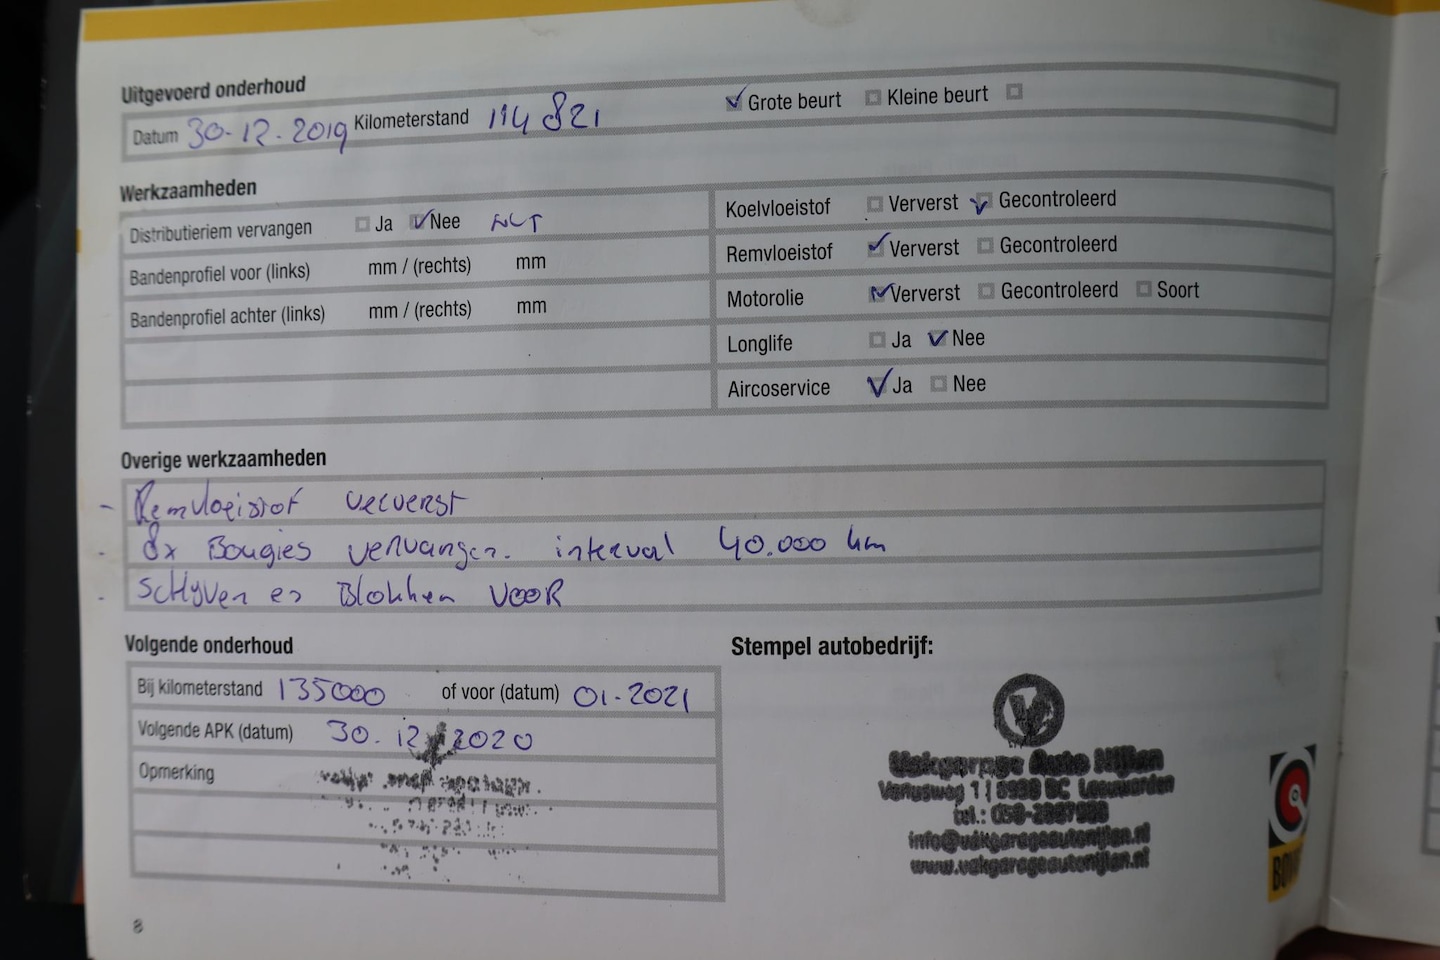 Uitgevoerd onderhoud
Datum 30-12-2019 Kilometerstand 114821 Grote beurt Kleine beurt
Werkzaamheden
Distributieriem vervangen Ja Nee
Bandenprofiel voor (links) mm / (rechts) mm
Bandenprofiel achter (links) mm / (rechts) mm
Koelvloeistof Ververst Gecontroleerd
Remvloeistof Ververst Gecontroleerd
Motorolie Ververst Gecontroleerd Soort
Longlife Ja Nee
Aircoservice Ja Nee
Overige werkzaamheden
- Remvloeistof ververst
- 8x Bougies vervangen. interval 40.000 km
- Schijven en Blokken VOOR
Volgende onderhoud
Bij kilometerstand 135000 of voor (datum) 01-2021
Volgende APK (datum) 30-12-2020
Opmerking
Stempel autobedrijf:
Vakgarage Auto Nijlan
Leeuwarden
info@vakgarageautonijlan.nl
www.vakgarageautonijlan.nl
8